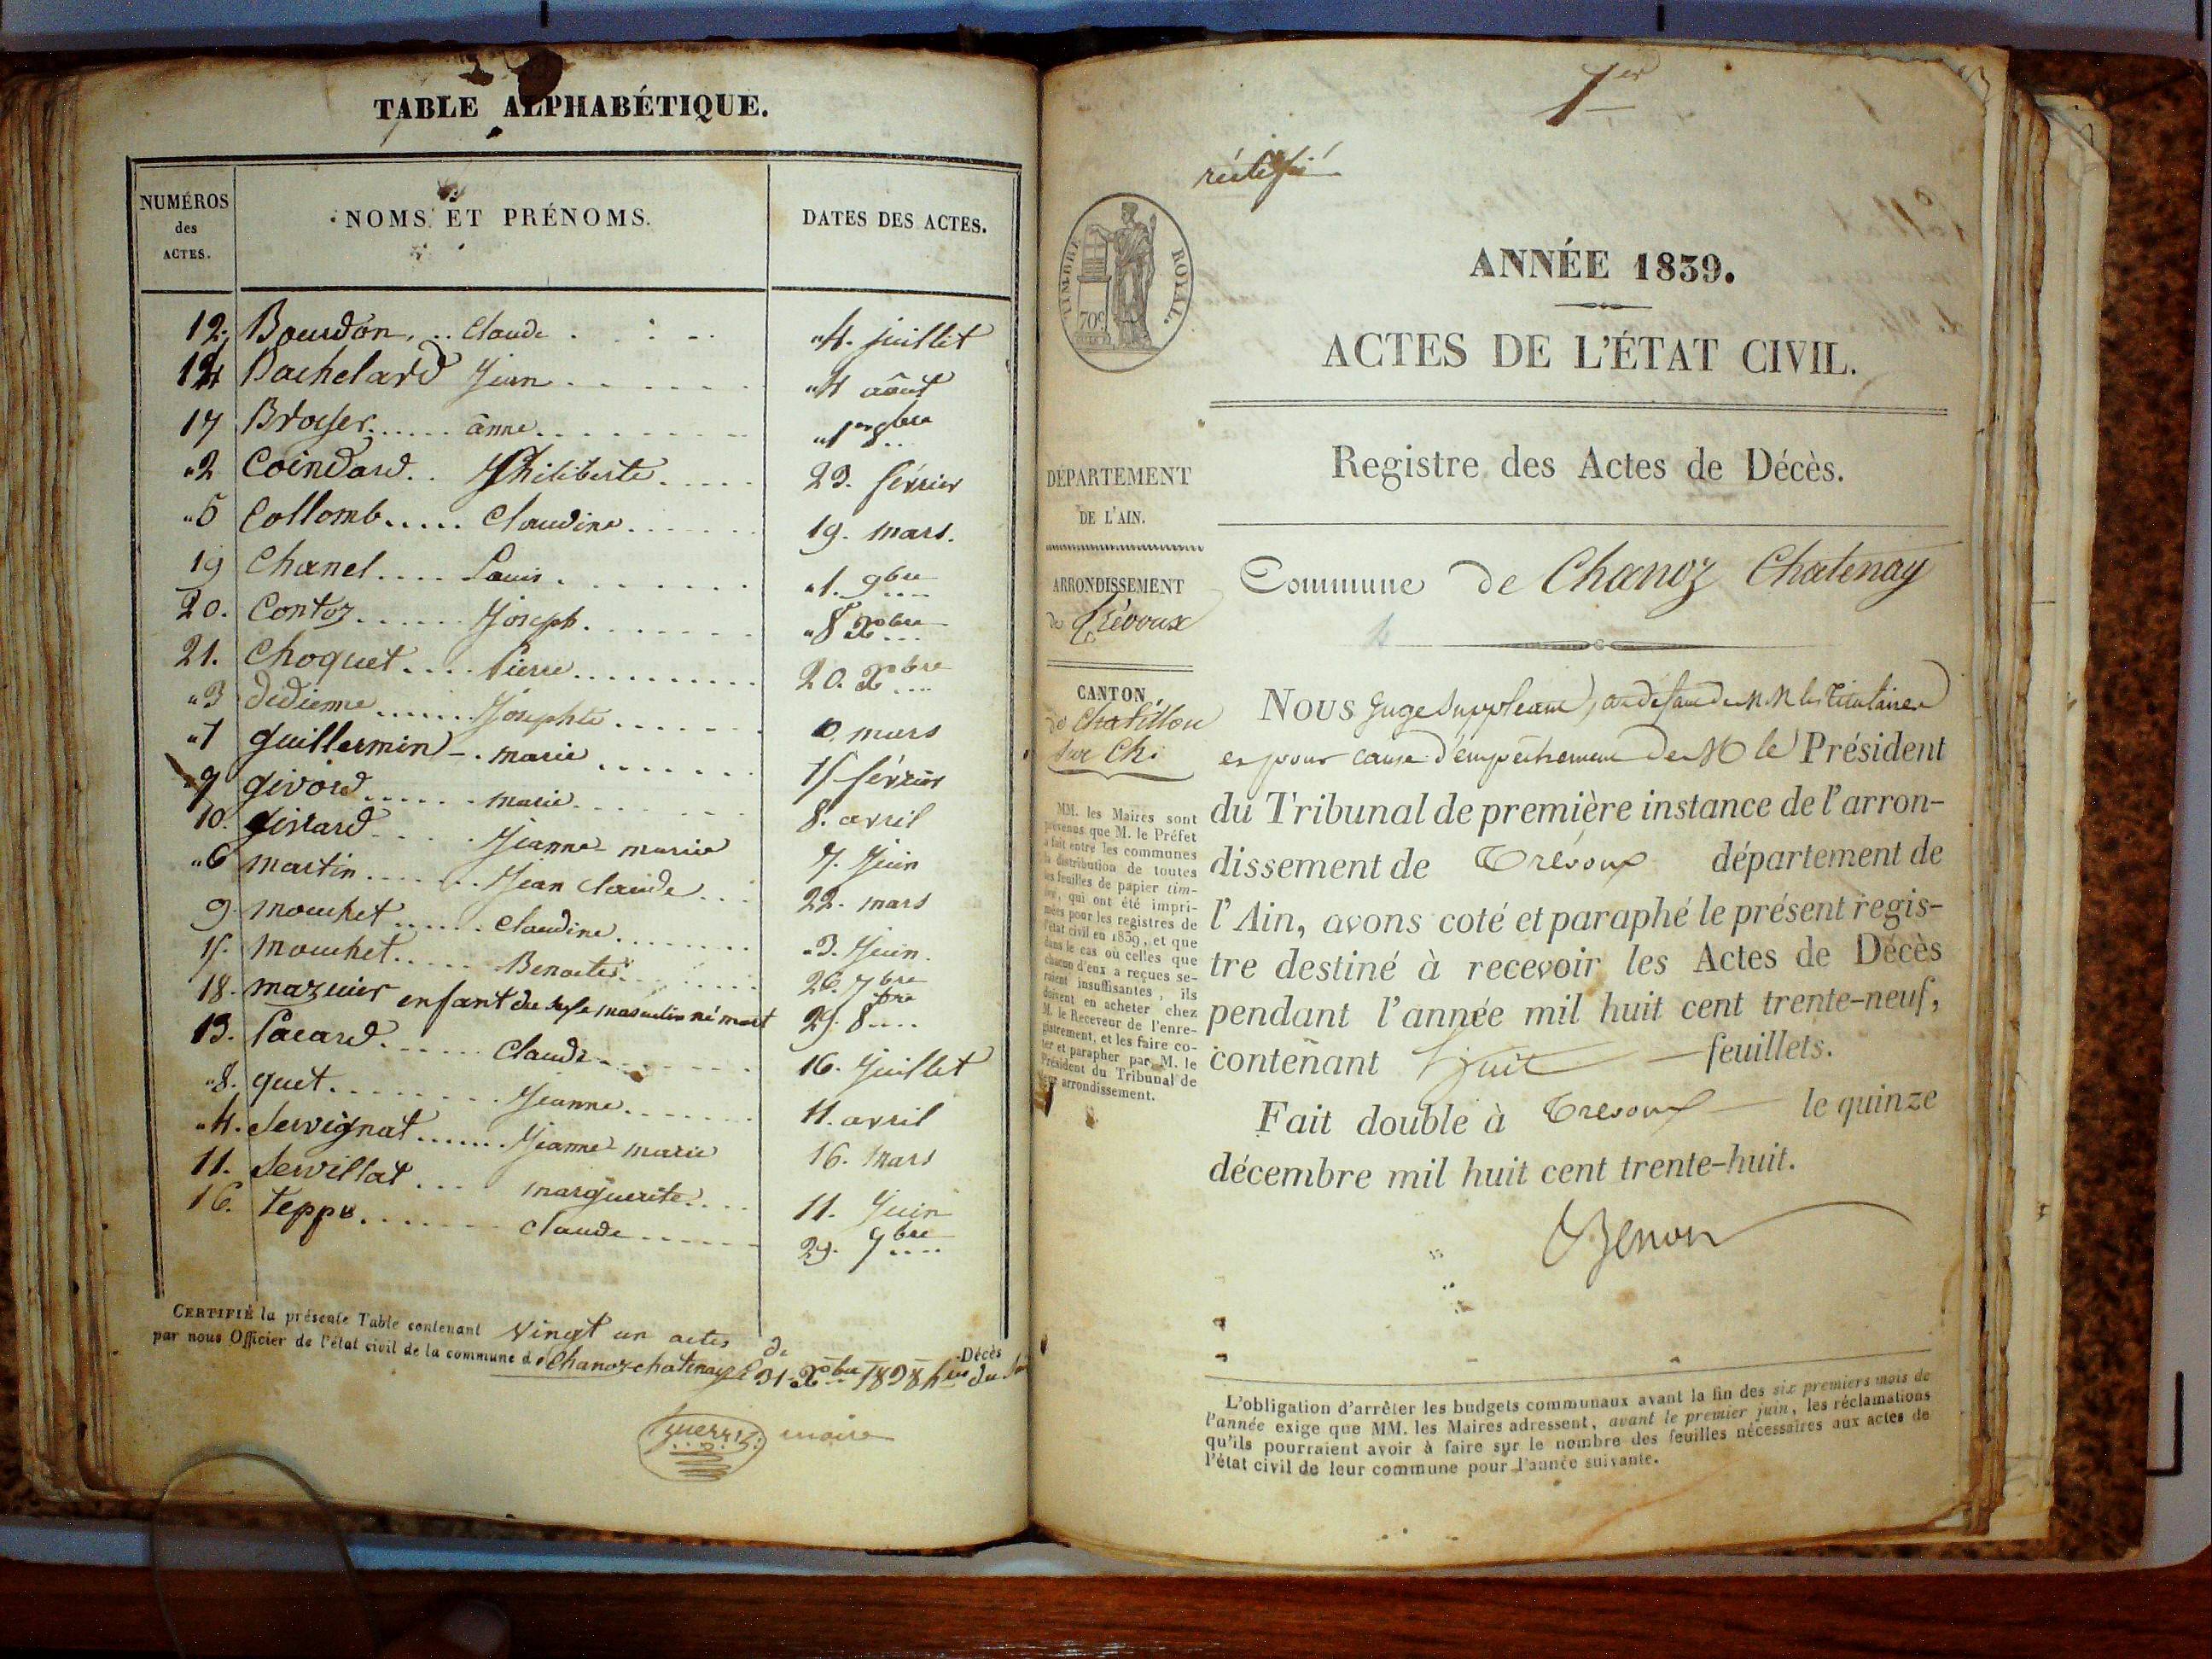 TABLE ALPHABÉTIQUE.
NUMÉROS
des
ACTES.
NOMS ET PRÉNOMS.
DATES DES ACTES.
12. Bourdon, .. Claude . . . . "4. juillet
14 Bachelard Jean . . . . . "4 août
17 Brosser...... anne......... "1er 8bre
"2 Coindard.. Philiberte..... 23. février
"5 Collomb..... Claudine...... 19. mars.
19 Chanel.... Louis........ "1. 9bre
20. Contoz...... Joseph....... "8 Xbre
21. Choquet.... Pierre.......... 20. Xbre
"3 dedienne....... Josephte..... mars
"1 guillermin -. marie ...... 15 février
"7 givord...... marie...... 8. avril
10. girard..... Jeanne marie 7. Juin
"6 martin....... Jean claude... 22. mars
9. mouchet...... Claudine........ "3. Juin.
15. mouchet..... Benoite...... 26. 7bre
18. mazuir enfant du sexe masculin né mort 29. 8bre
13. Pacard...... Claude....... 16. Juillet
"8. quet........ Jeanne...... 11. avril
"4. Servignat....... Jeanne marie 16. Mars
11. Servillat... marguerite.... 11. Juin
16. teppe....... claude...... 29. 7bre
CERTIFIÉ la présente Table contenant vingt un actes de Décès
par nous Officier de l'état civil de la commune de Chanoz chatenay le 31 Xbre 1838
maire
1er
rectifié
TIMBRE ROYAL.
70c
ANNÉE 1839.
ACTES DE L'ÉTAT CIVIL.
Registre des Actes de Décès.
DÉPARTEMENT
DE L'AIN.
ARRONDISSEMENT
de Trévoux
CANTON
de Chatillon
sur Ch.
Commune de Chanoz Chatenay
NOUS Juge Suppléant, au défaut de MM les Titulaires
et pour cause d'empêchement de M le Président
du Tribunal de première instance de l'arron-
dissement de Trévoux département de
l'Ain, avons coté et paraphé le présent regis-
tre destiné à recevoir les Actes de Décès
pendant l'année mil huit cent trente-neuf,
contenant huit feuillets.
Fait double à Trevoux le quinze
décembre mil huit cent trente-huit.
MM. les Maires sont
prévenus que M. le Préfet
a fait entre les communes
la distribution de toutes
les feuilles de papier tim-
bré, qui ont été impri-
mées pour les registres de
l'état civil en 1839, et que
dans le cas où celles que
chacun d'eux a reçues se-
raient insuffisantes, ils
doivent en acheter chez
M. le Receveur de l'enre-
gistrement, et les faire co-
ter et parapher par M. le
Président du Tribunal de
leur arrondissement.
L'obligation d'arrêter les budgets communaux avant la fin des six premiers mois de
l'année exige que MM. les Maires adressent, avant le premier juin, les réclamations
qu'ils pourraient avoir à faire sur le nombre des feuilles nécessaires aux actes de
l'état civil de leur commune pour l'année suivante.